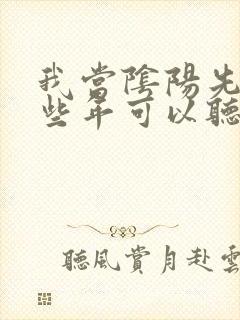 我當陰陽先
些年可以聽
聽風賞月赴雲